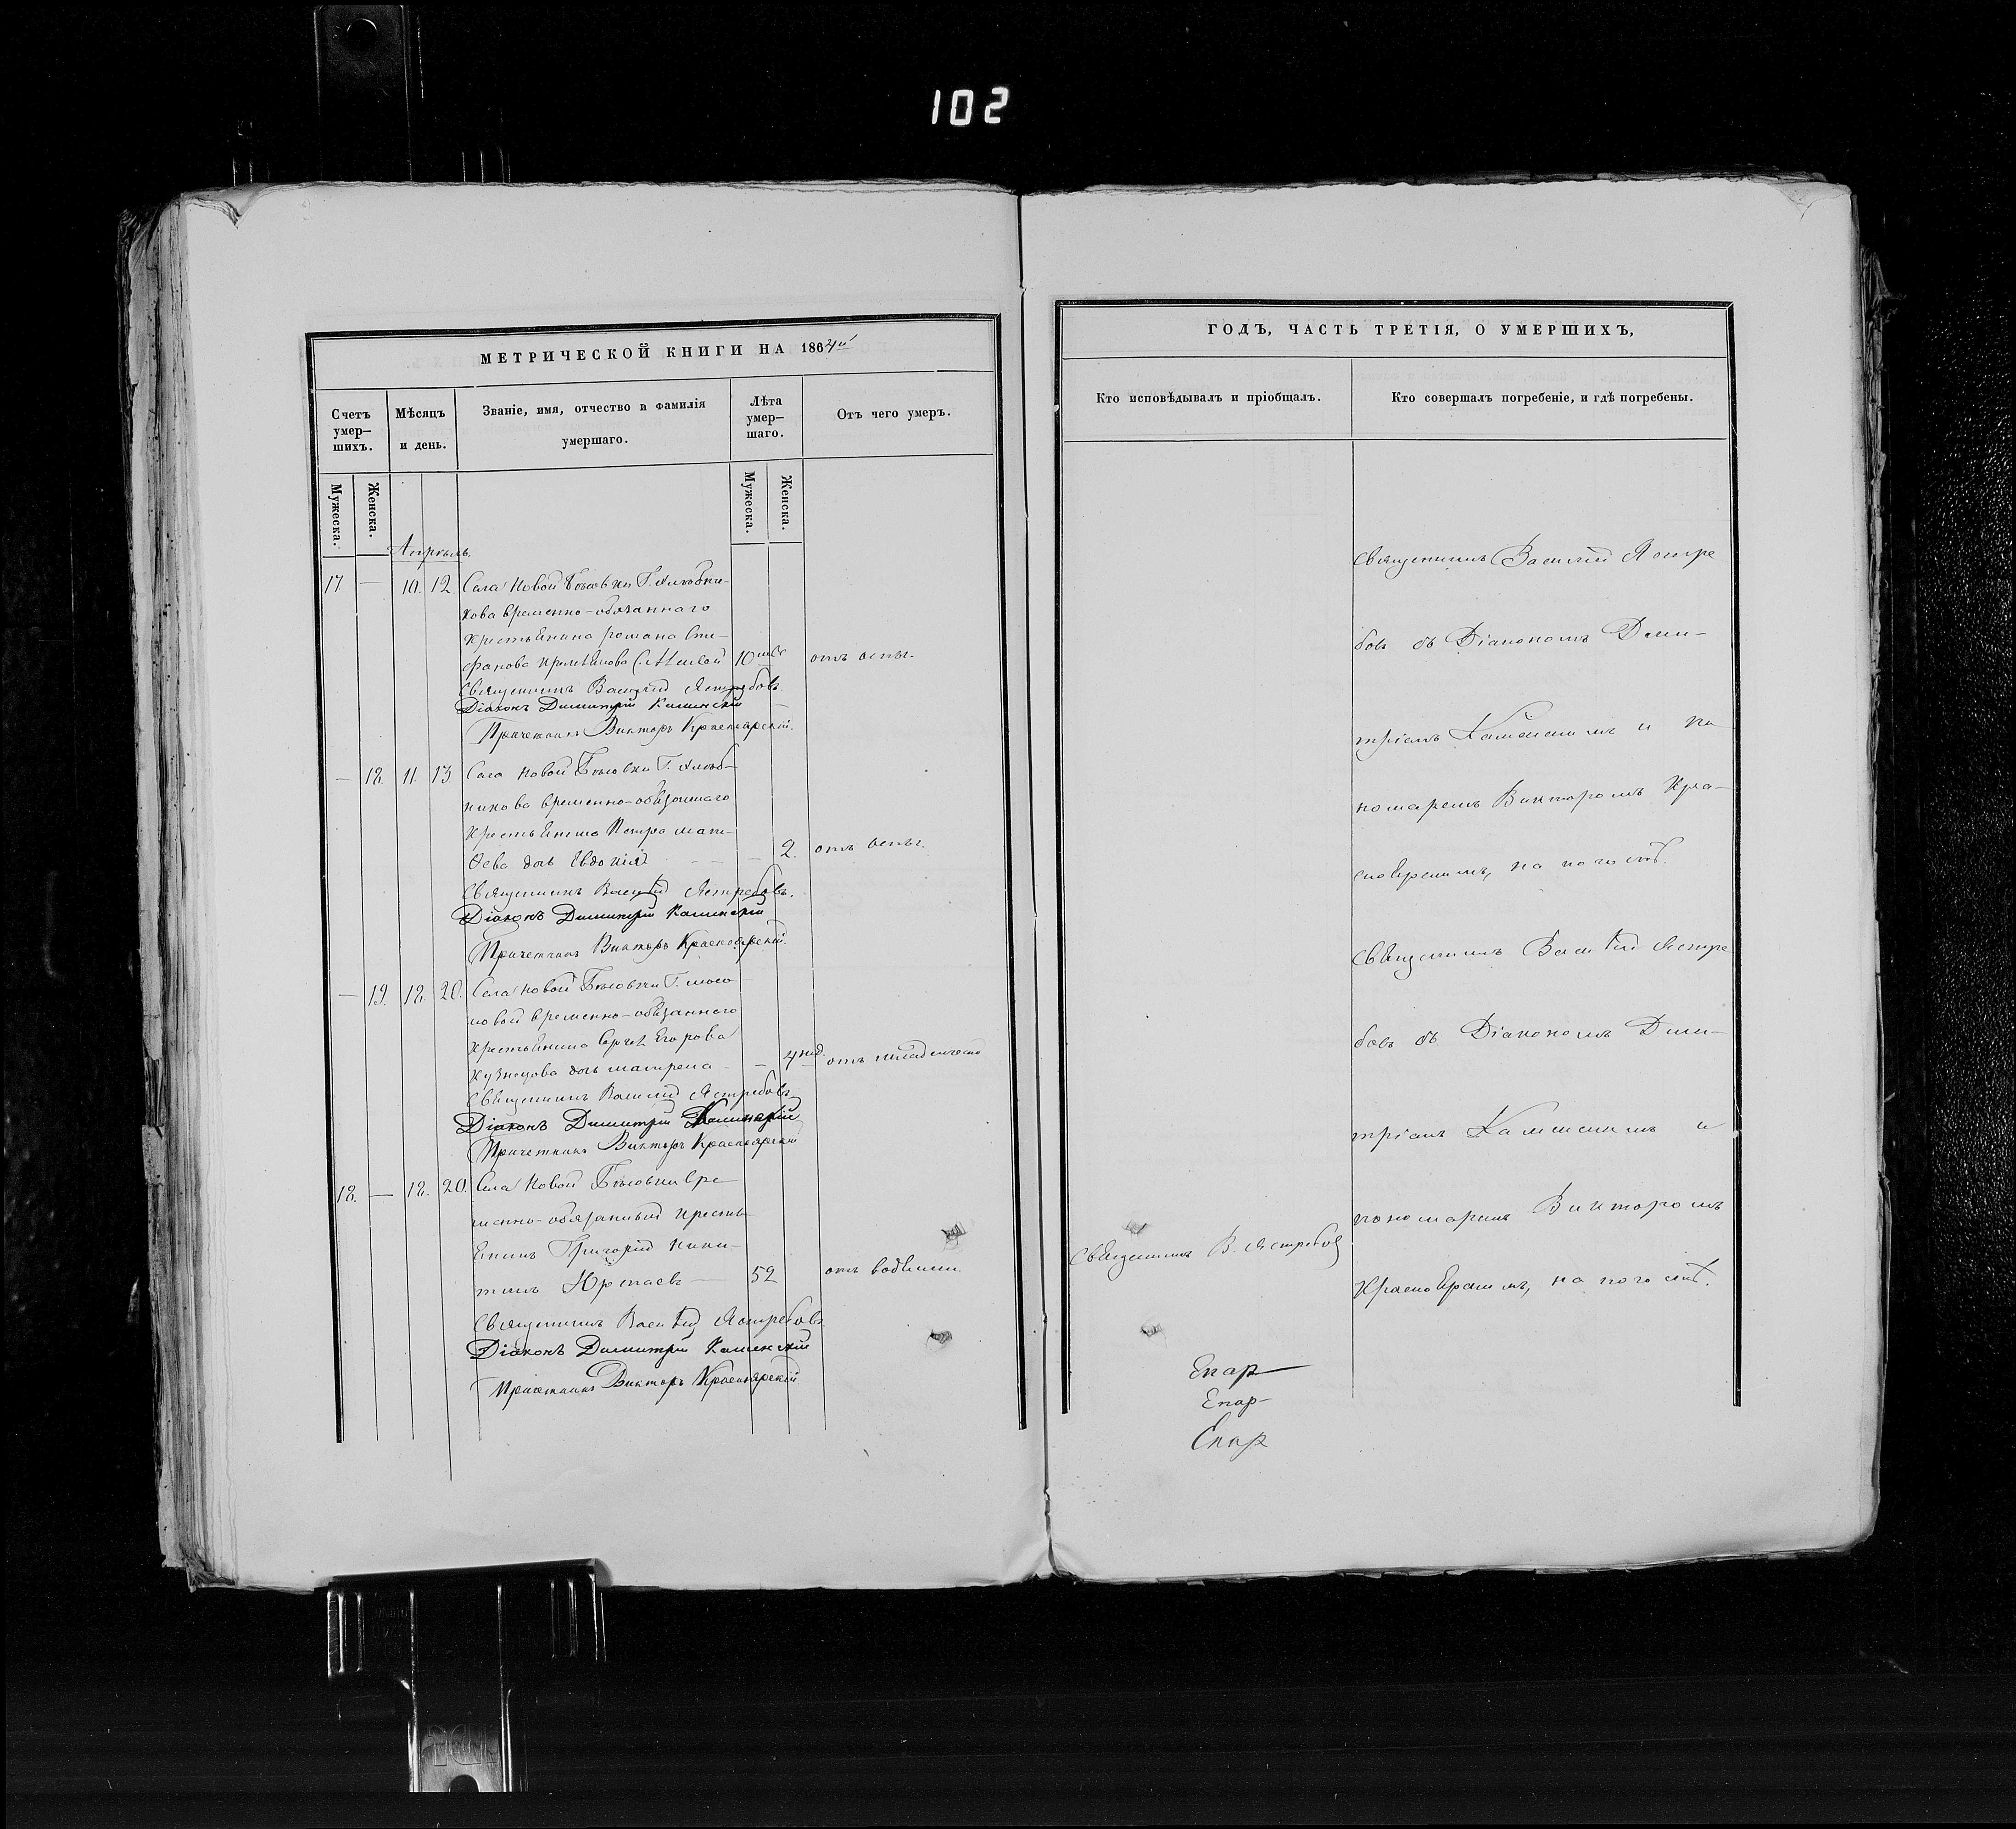 102
МЕТРИЧЕСКОЙ КНИГИ НА 1864й
Счетъ умер–шихъ.
Мѣсяцъ и день.
Званіе, имя, отчество и фамилія умершаго.
Лѣта умер–шаго.
Отъ чего умеръ.
Мужеска.
Женска.
Мужеска.
Женска.
Апрѣль.
17 — 10. 12. Села Новой Г.
кова временно-обязаннаго
крестьянина романа Сти-
фанова 10 отъ оспы.
Священникъ Василій Ястребовъ
Діаконъ Димитрій Каминскій
Причетникъ Викторъ Красноярскій.
— 18. 11. 13 Села Новой Г.
никова временно-обязаннаго
крестьянина Петра мат-
ѳева дочь Евдокія — 2. отъ оспы.
Священникъ Василій Ястребовъ.
Діаконъ Димитрій Каминскій
Причетникъ Викторъ Красноярскій.
— 19. 18. 20. Села Новой Г.
ловой временно-обязаннаго
крестьянина Сергѣя Егорова
Кузнецова дочь матрена — 4 нед. отъ младенческой
Священникъ Василій Ястребовъ
Діаконъ Димитрій Каминскій
Причетникъ Викторъ Красноярскій
18. — 18. 20. Села Новой вре
менно-обязанный кресть
янинъ Григорій Ники-
тинъ Юртаевъ — 52 отъ водянки.
Священникъ Василій Ястребовъ
Діаконъ Димитрій Каминскій
Причетникъ Викторъ Красноярскій
ГОДЪ, ЧАСТЬ ТРЕТІЯ, О УМЕРШИХЪ,
Кто исповѣдывалъ и пріобщалъ.
Кто совершалъ погребеніе, и гдѣ погребены.
Священникъ Василій Ястре
бовъ съ Діакономъ Дими-
тріемъ Каминскимъ и по
номаремъ Викторомъ Кра-
сноярскимъ, на погостѣ.
Священникъ Василій Ястре
бовъ съ Діакономъ Дими-
тріемъ Каминскимъ и
пономаремъ Викторомъ
Священникъ В. Ястребовъ
Красноярскимъ, на погостѣ.
Епар
Епар
Епар